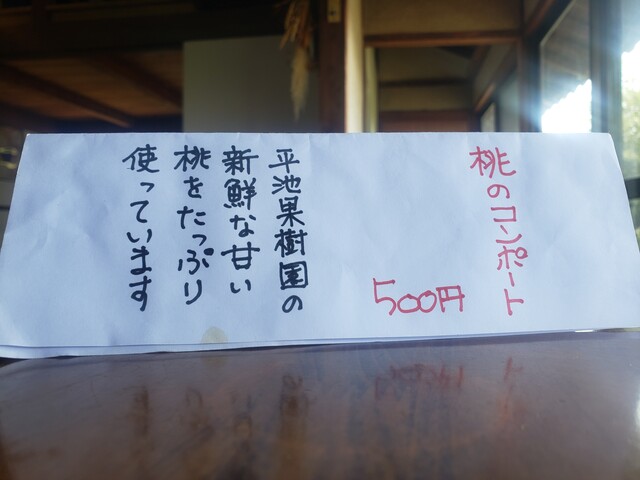 桃のコンポート
500円
平池果樹園の
新鮮な甘い
桃をたっぷり
使っています